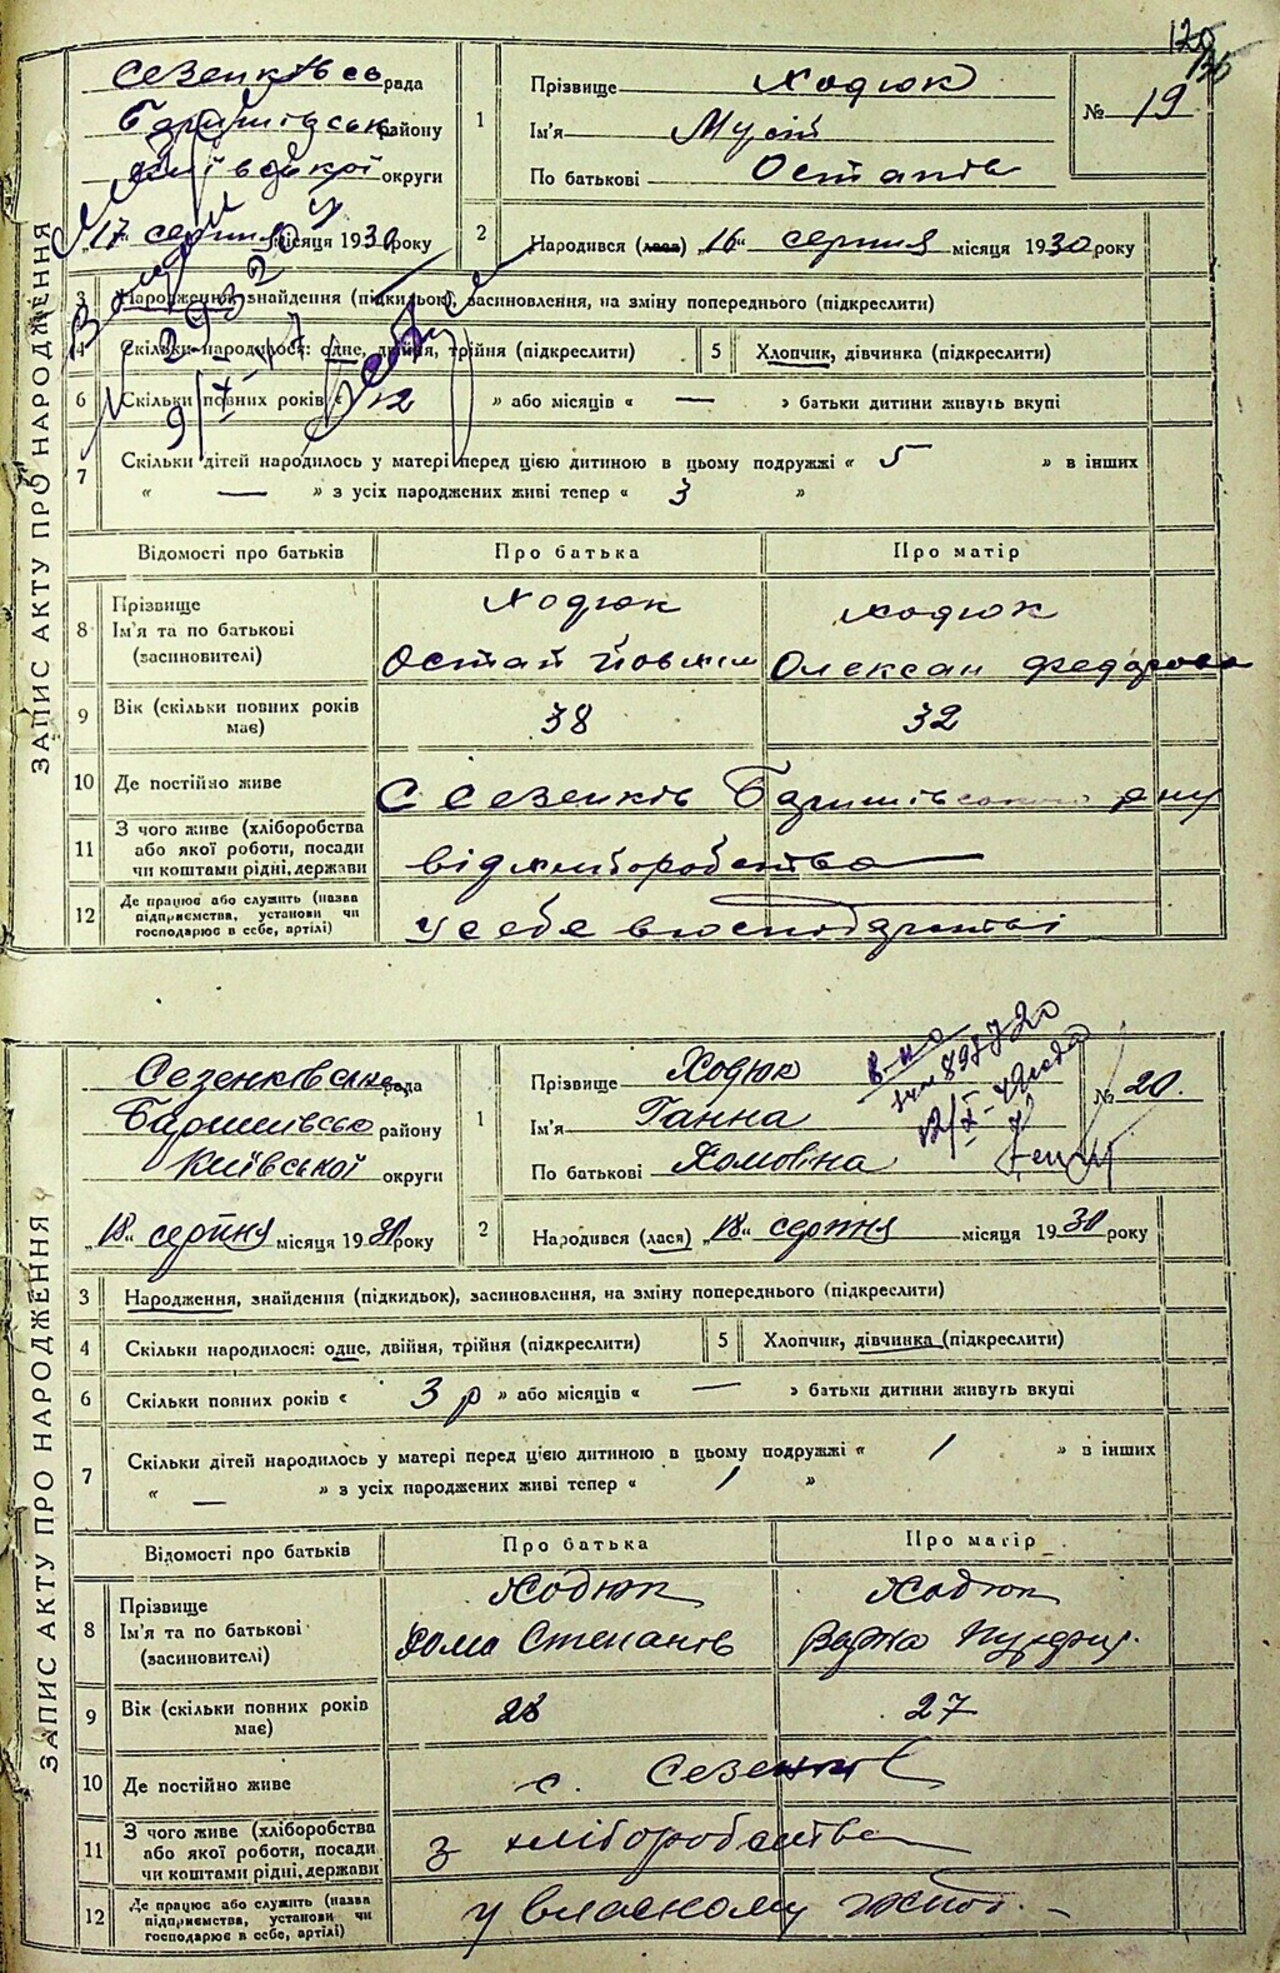 ЗАПИС АКТУ ПРО НАРОДЖЕННЯ
Сезенківсь рада
Баришівськ району
Київської округи
„17“ серпня місяця 1930 року
1 Прізвище Ходюк
Ім'я Мусій
По батькові Остапів
№ 19
2 Народився (лася) „16“ серпня місяця 1930 року
3 Народження, знайдення (підкидьок), засиновлення, на зміну попереднього (підкреслити)
4 Скільки народилося: одне, двійня, трійня (підкреслити) 5 Хлопчик, дівчинка (підкреслити)
6 Скільки повних років « 12 » або місяців « — » батьки дитини живуть вкупі
7 Скільки дітей народилось у матері перед цією дитиною в цьому подружжі « 5 » в інших
« — » з усіх народжених живі тепер « 3 »
Відомості про батьків Про батька Про матір
8 Прізвище Ім'я та по батькові (засиновителі)
Ходюк Ходюк
Остап Олексан Федоровн
9 Вік (скільки повних років має) 38 32
10 Де постійно живе С Сезенків Баришівського р ну
11 З чого живе (хліборобства або якої роботи, посади чи коштами рідні, держави від хліборобства
12 Де працює або служить (назва підприємства, установи чи господарює в себе, артілі) у себе в господарстві
ЗАПИС АКТУ ПРО НАРОДЖЕННЯ
Сезенківська рада
Баришівсько району
Київської округи
„18“ серпня місяця 1930 року
1 Прізвище Ходюк
Ім'я Ганна
По батькові Хомовна
№ 20.
2 Народився (лася) „18“ серпня місяця 1930 року
3 Народження, знайдення (підкидьок), засиновлення, на зміну попереднього (підкреслити)
4 Скільки народилося: одне, двійня, трійня (підкреслити) 5 Хлопчик, дівчинка (підкреслити)
6 Скільки повних років « 3 р » або місяців « — » батьки дитини живуть вкупі
7 Скільки дітей народилось у матері перед цією дитиною в цьому подружжі « 1 » в інших
« — » з усіх народжених живі тепер « 1 »
Відомості про батьків Про батька Про матір
8 Прізвище Ім'я та по батькові (засиновителі)
Ходюк Ходюк
Хома Степанів
9 Вік (скільки повних років має) 28 27
10 Де постійно живе с. Сезенків
11 З чого живе (хліборобства або якої роботи, посади чи коштами рідні, держави з хліборобства
12 Де працює або служить (назва підприємства, установи чи господарює в себе, артілі) у власному